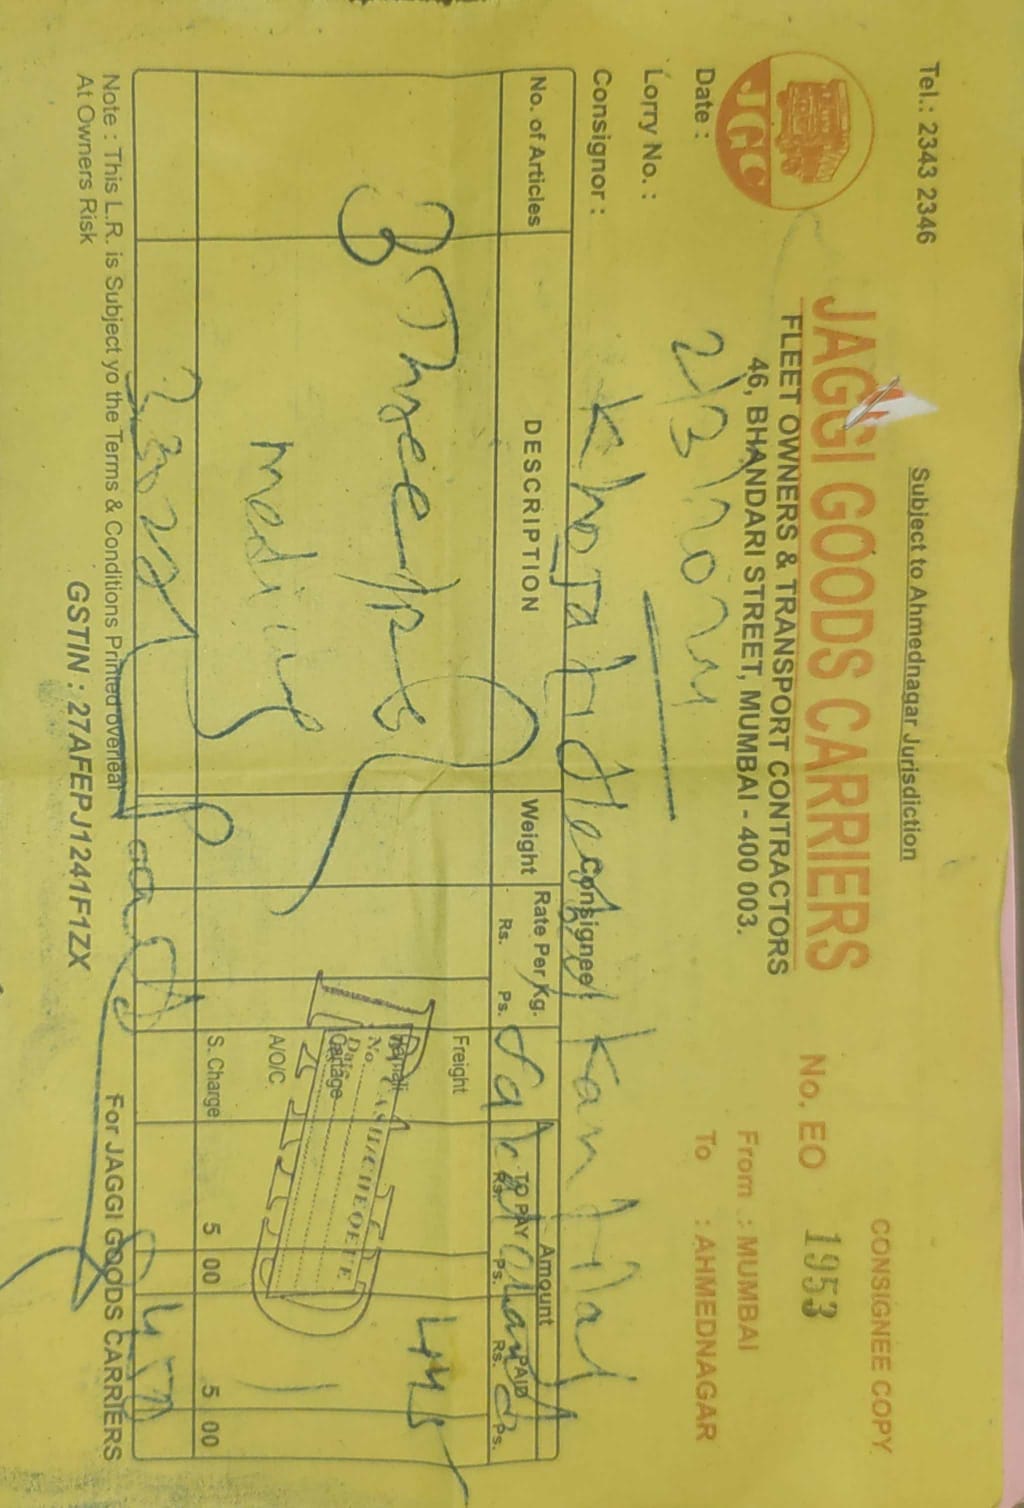 Tel.: 2343 2346
Subject to Ahmednagar Jurisdiction
CONSIGNEE COPY
JGC
JAGGI GOODS CARRIERS
FLEET OWNERS & TRANSPORT CONTRACTORS
46, BHANDARI STREET, MUMBAI - 400 003.
No. EO 1953
From : MUMBAI
To : AHMEDNAGAR
Date :
Lorry No. :
Consignor :
Consignee
Kantilal
No. of Articles DESCRIPTION Weight Rate Per Kg. Amount
Rs. Ps. TO PAY PAID
Rs. Ps. Rs. Ps.
3 Three
Freight 445
Hamali
Cartage
A/O/C.
CASH/CHEQUE
No.
Date
S. Charge 5 00 5 00
Paid 450
Note : This L.R. is Subject yo the Terms & Conditions Printed overleaf
At Owners Risk
GSTIN : 27AFEPJ1241F1ZX
For JAGGI GOODS CARRIERS